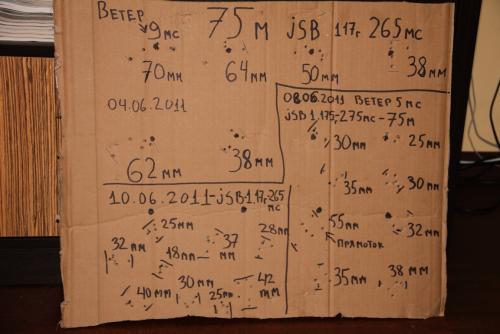 ВЕТЕР 9МС 75М jSB 1.17г 265МС
70мм 64мм 50мм 38мм
04.06.2011
62мм 38мм
08.06.2011 ВЕТЕР 5МС
jSB 1.175-275МС-75М
30мм 25мм
35мм 30мм
55мм 32мм
ПРЯМОТОК
35мм 38мм
10.06.2011-jSB1.17г-265
МС
25мм
32мм 18мм 37мм 28мм
30мм 42мм
40мм 25мм